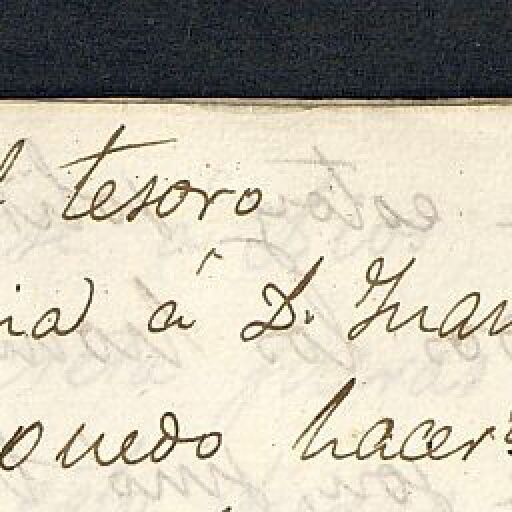 l tesoro
ia á D. Juan
puedo hacer